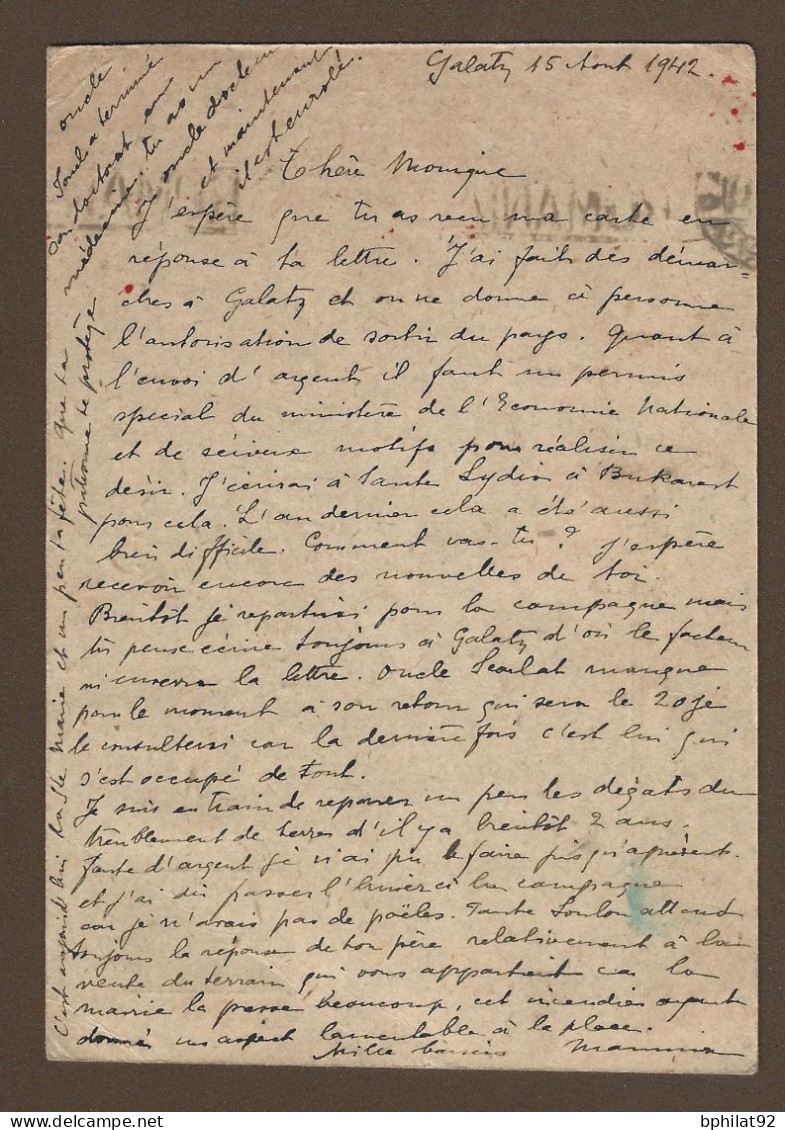 Galatz 15 Aout 1942.
Chère Monique
J'espère que tu as reçu ma carte en
réponse à ta lettre. J'ai fait des démar-
ches à Galatz et on ne donne à personne
l'autorisation de sortir du pays. Quant à
l'envoi d'argent il faut un permis
special du ministère de l'Economie Nationale
et de sérieux motifs pour réaliser ce
désir. J'écrirai à Tante Lydia à Bukarest
pour cela. L'an dernier cela a été aussi
bien difficile. Comment vas-tu? J'espère
recevoir encore des nouvelles de toi.
Bientôt je repartirai pour la campagne mais
tu peux écrire toujours à Galatz d'où le facteur
m'enverra la lettre. Oncle Scarlat manque
pour le moment à son retour qui sera le 20 je
le consulterai car la dernière fois c'est lui qui
s'est occupé de tout.
Je suis en train de reparer un peu les dégats du
tremblement de terres d'il y a bientôt 2 ans.
Faute d'argent je n'ai pu le faire jusqu'à présent.
et j'ai dû passer l'hiver à la campagne
car je n'avais pas de poëles. Tante Loulou attend
toujours la réponse de ton père relativement à la
vente du terrain qui vous appartient car la
mairie la presse beaucoup, cet incendie ayant
donné un aspect lamentable à la place.
Mille baisers
C'est aujourd'hui la Ste Marie et un peu ta fête. Que ta
patronne te protège
oncle
a terminé
son doctorat en
médecine, tu as un
oncle docteur
et maintenant
il est enrolé.
ROMANIA
bphilat92